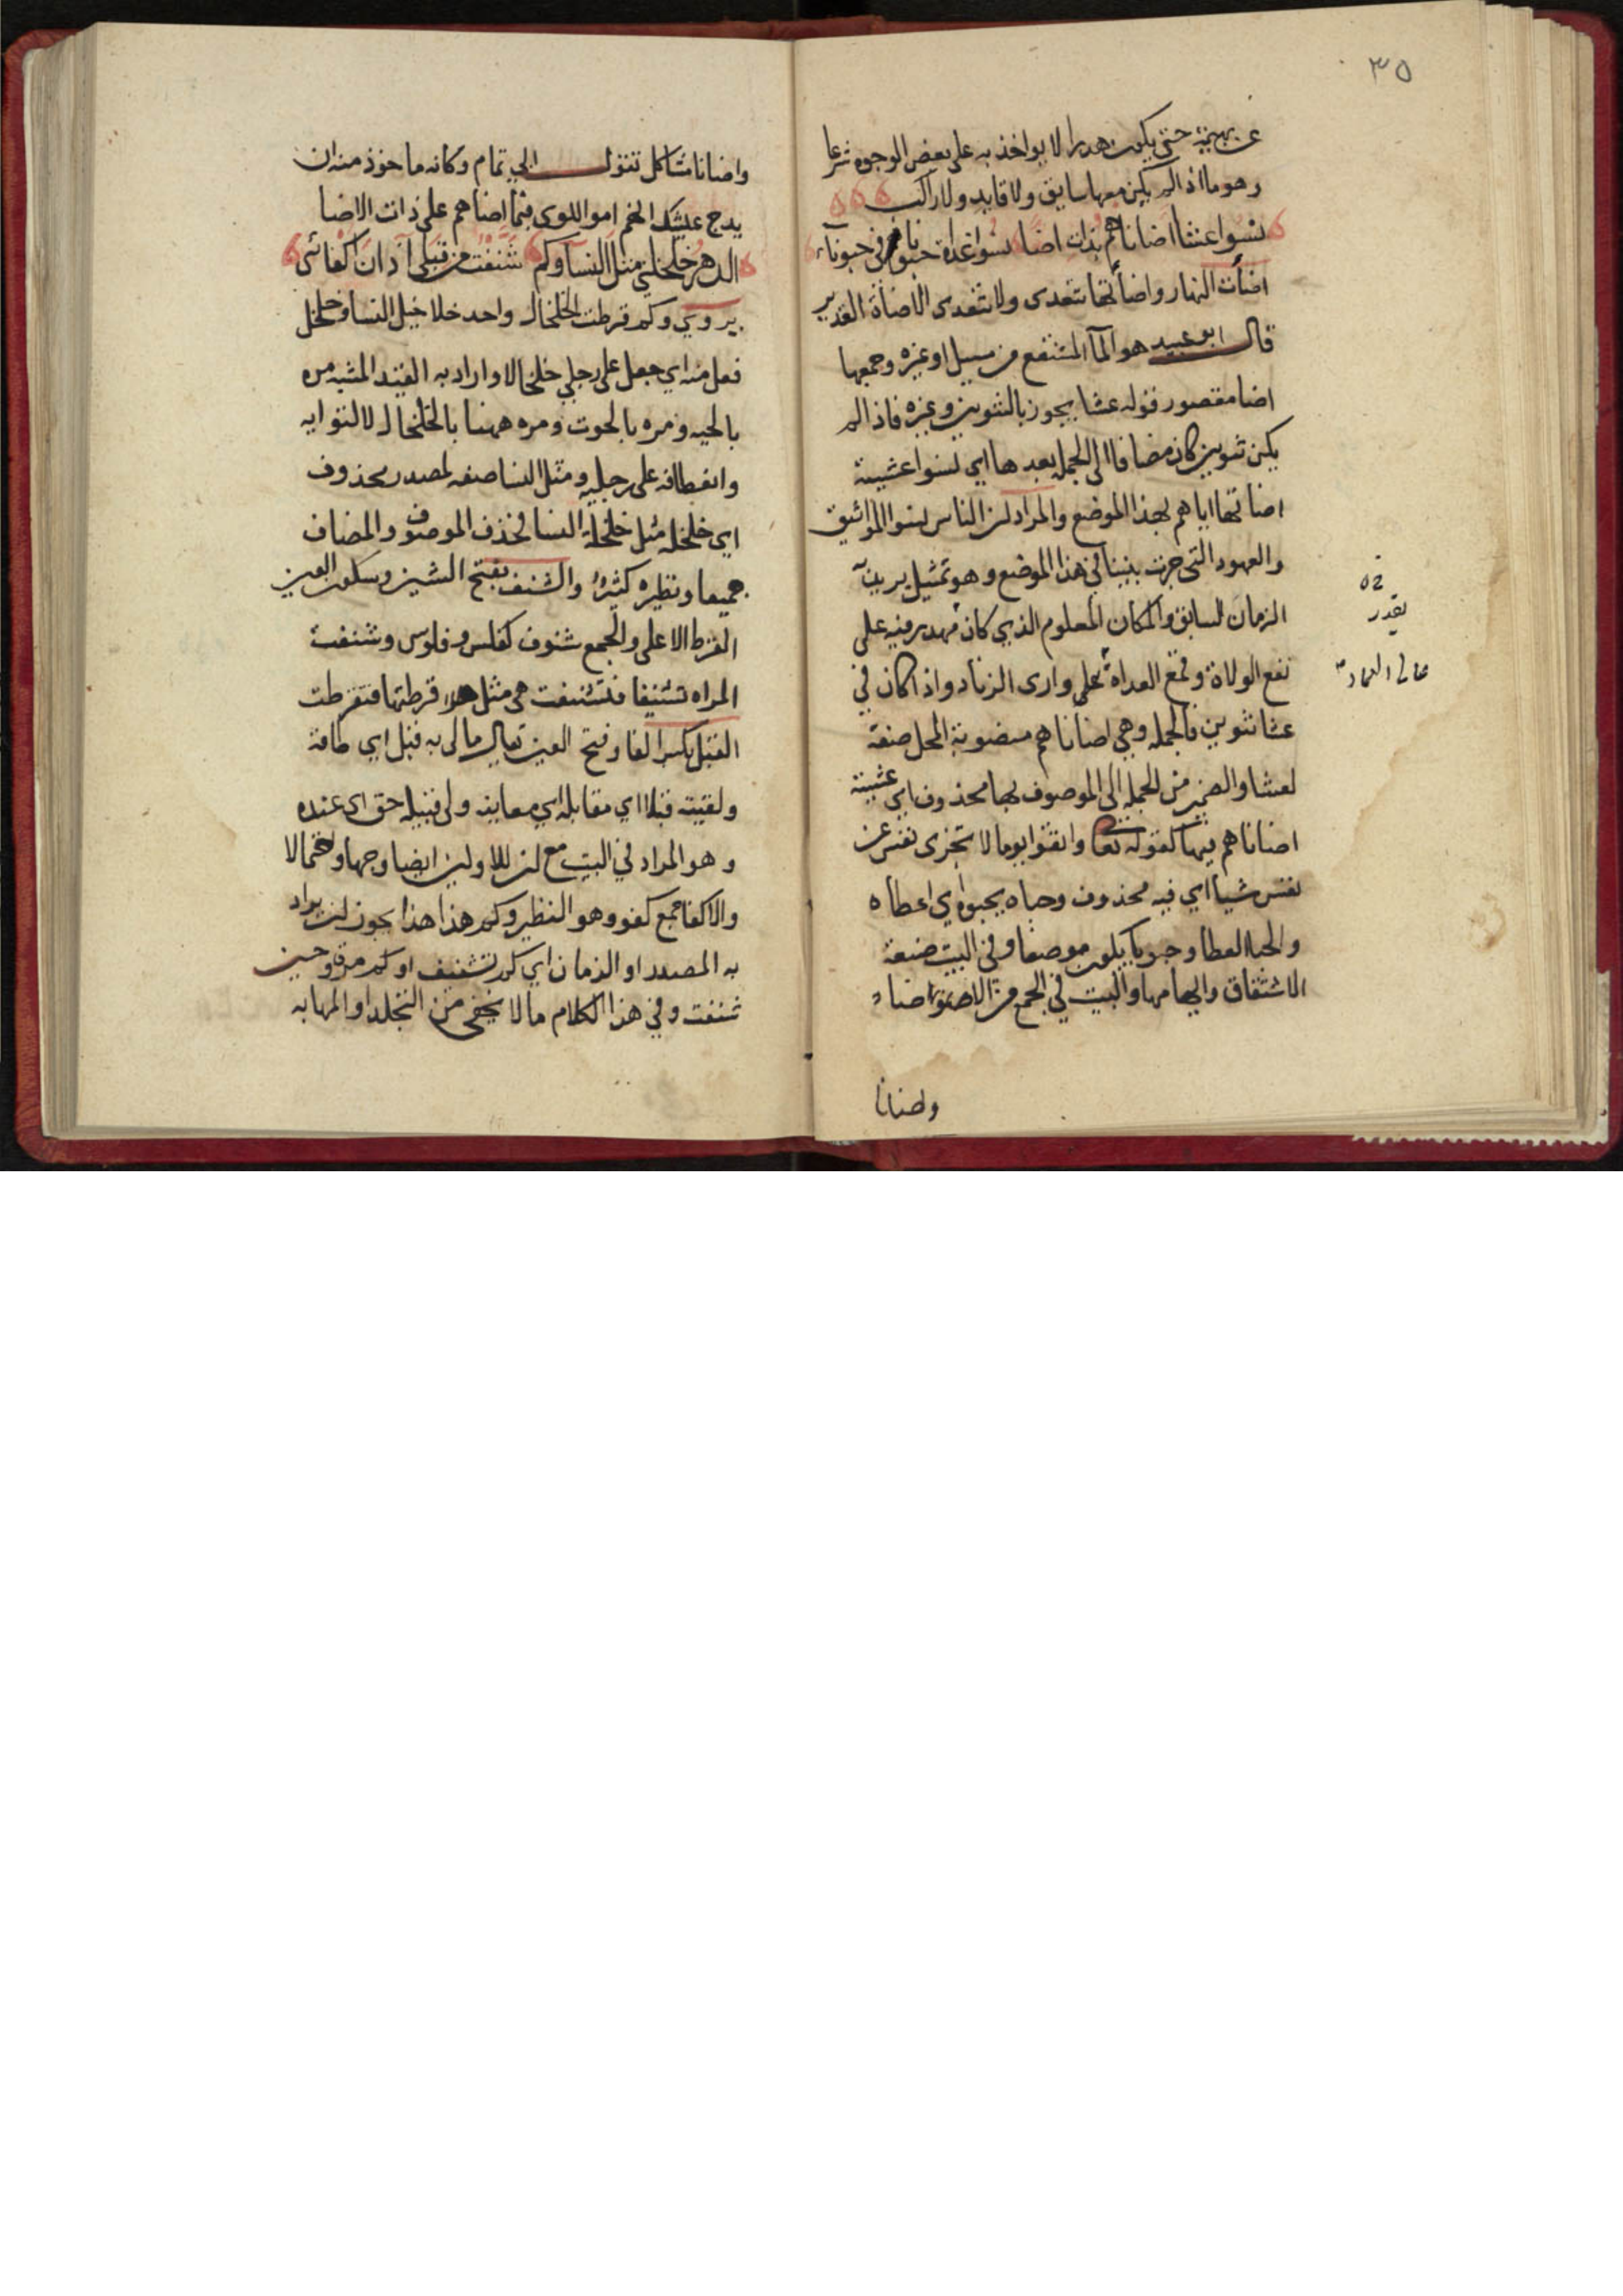 ٣٥
عن بهيمة حتى يكون هدرا لا يواخذ به على بعض الوجوه شرعا
وهو ما اذا لم يكن معها سايق ولا قايد ولا راكب
نسوا عشا اضاناهم بذات اضا نسوا غداة حبونا في حبونا
اضأت النار واضأتها تتعدى ولا تتعدى الاضاة الغدير
قال ابو عبيد هو الماء المستنقع من سيل او غيره وجمعها
اضا مقصور قوله عشا يجوز بالتنوين وغيره فاذا لم
يكن تنوين كان مضافا الى الجملة بعدها اي نسوا عشية
اضاتها اياهم بهذا الموضع والمراد ان الناس نسوا المواثيق
والعهود التي جرت بيننا في هذا الموضع وهو تمثيل يريد به
الزمان السابق والمكان المعلوم الذي كان فيه على
نفع الولاة وقمع العداة على وارى الزناد واذا كان في
عشا تنوين فالجملة وهي اضاناهم منصوبة المحل صفة
لعشا والضمير من الجملة الى الموصوف بها محذوف اي عشية
اضاناهم فيها كقوله تعا واتقوا يوما لا تجزى نفس عن
نفس شيأ اي فيه محذوف وحباه يحبوه اي اعطاه
والحبا العطا و يكون موضعا وفي البيت صنعة
الاشتقاق والبيت في الجمع من اضاء
واضانا
تقدر
واضانا مشاكل تنول ابي تمام وكانه ماخوذ منه ان
يدج عيشك انهم اموا اللوى فبما اضاهم على ذات الاضا
الدهر خلخلني مثل النسا وكم شنفت من قبلي آذان اكفائي
يروي وكم قرطت الخلخال واحد خلاخيل النسا وخلخل
فعل منه اي جعل على رجلي خلخالا واراد به القيد المشبه مره
بالحيه ومره بالحوت ومره ههنا بالخلخال لالتوايه
وانعطافه على رجليه ومثل النسا صفه لمصدر محذوف
اي خلخلة مثل خلخلة النسا فحذف الموصوف والمضاف
جميعا ونظيره كثير والشنف بفتح الشين وسكون العين
القرط الاعلى والجمع شنوف كفلس وفلوس وشنفت
المراه تشنيفا فتشنفت هي مثل قرطتها فتقرطت
القبل بكسر الفا وفتح العين يقال ما لي به قبل اي طاقة
ولقيته قبلا اي مقابلة اي معاينه ولي قبيله حق اي عنده
وهو المراد في البيت مع ان للاولين ايضا وجها واحتمالا
والاكفا جمع كفو وهو النظير وكم هذا هذا يجوز ان يراد
به المصدر او الزمان اي كم تشنيف او كم مرة وحين
شنفت وفي هذا الكلام ما لا يخفى من التجلد او المهابه